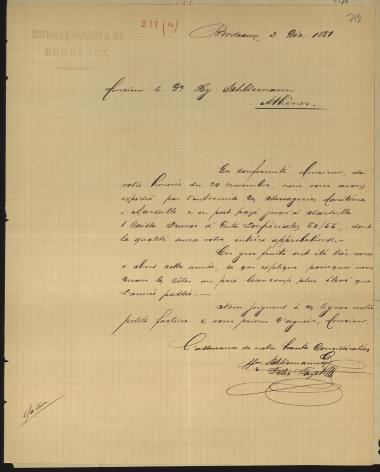 238 (a)
SCHLIEMANN & Cie
BORDEAUX
Bordeaux 3 Déc 1880
Monsieur le Dr Hy Schliemann
Athènes.
En conformité, Monsieur, de
votre honorée du 20 novembre, nous vous avons
expédié par l'entremise des Messageries Maritimes
à Marseille & en port payé jusqu'à Marseille
1 Caisse Prunes d'Ente Impériales 50/55, dont
la qualité aura votre entière approbation.
Ces gros fruits ont été très rares
& chers cette année, ce qui explique pourquoi nous
avons le côter un prix beaucoup plus élevé que
l'année passée.
Nous joignons à ces lignes notre
petite facture & vous prions d'agréer, Monsieur,
l'assurance de notre haute Considération
Schliemann & Co